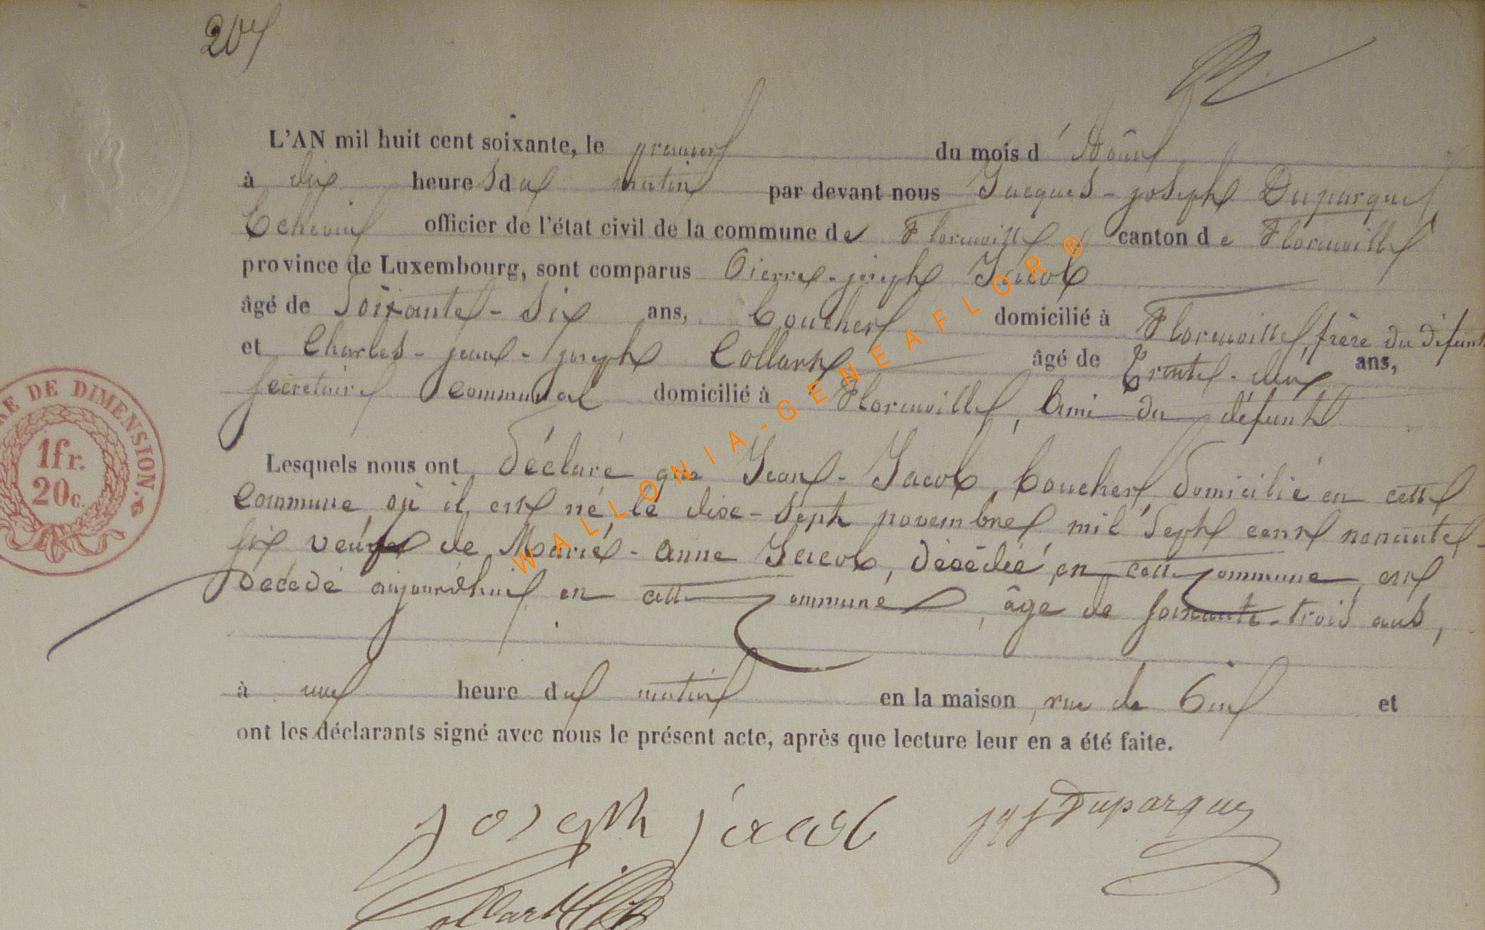 207
L'AN mil huit cent soixante, le premier du mois d'Août
à dix heures du matin par devant nous Jacques-joseph Duparque
Echevin officier de l'état civil de la commune de Florenville canton de Florenville
province de Luxembourg, sont comparus Pierre-joseph Jacob
âgé de Soixante-six ans, domicilié à Florenville, frère du défunt
et Charles-jean-joseph Collard âgé de Trente-deux ans,
secrétaire communal domicilié à Florenville, ami du défunt
Lesquels nous ont déclaré que Jean-Jacob domicilié en cette
commune où il est né, le dixe-sept novembre mil sept cent nonante-
six veuf de Marie-anne Jacob, décédée en cette commune, est
décédé aujourd'hui en cette commune, âgé de soixante-trois ans,
à une heure du matin en la maison rue de et
ont les déclarants signé avec nous le présent acte, après que lecture leur en a été faite.
joseph jacob J J Duparque
Collard
DE DIMENSION.
1fr.
20c.
WALLONIA-GENEAFLOR®